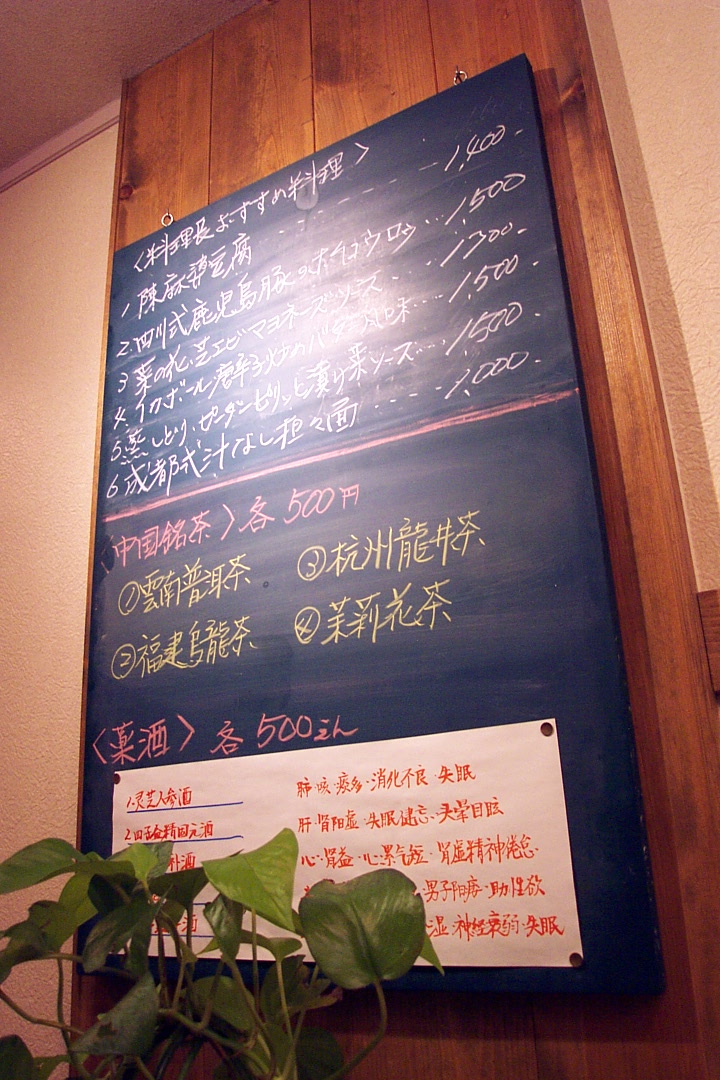 〈料理長おすすめ料理〉
1 陳麻婆豆腐 1,400-
2.四川式鹿児島豚のホイコウロウ 1,500
3 菜の花、芝エビマヨネーズソース 1300-
4.イカボール唐辛子炒めバター風味 1,500-
5.蒸しどり、ピータンピリッと漬け菜ソース 1,500-
6 成都式汁なし担々面 1,000-
〈中国銘茶〉各500円
①雲南普洱茶 ③杭州龍井茶
②福建烏龍茶 ④茉莉花茶
〈薬酒〉各500えん
1.灵芝人参酒 肺·咳·痰多·消化不良·失眠
肝·肾阳虚·失眠健忘·头晕目眩
补酒 心·肾益·心累气短·肾虚精神倦怠·
男子阳痿·助性欲
酒 湿·神经衰弱·失眠